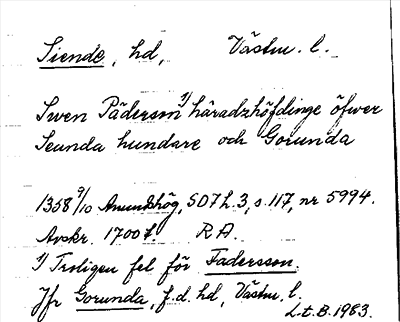 Siende, hd, Västm. l.
Swen Päderson 1) häradzhöfdinge öfwer
Seunda hundare och Gorunda
1358 9/10 Anundshög, SD 7 h. 3, s. 117, nr 5994.
Avskr. 1700 t. RA.
1) Troligen fel för Fadersson.
Jfr Gorunda, f.d. hd, Västm. l.
L.t.B. 1983.